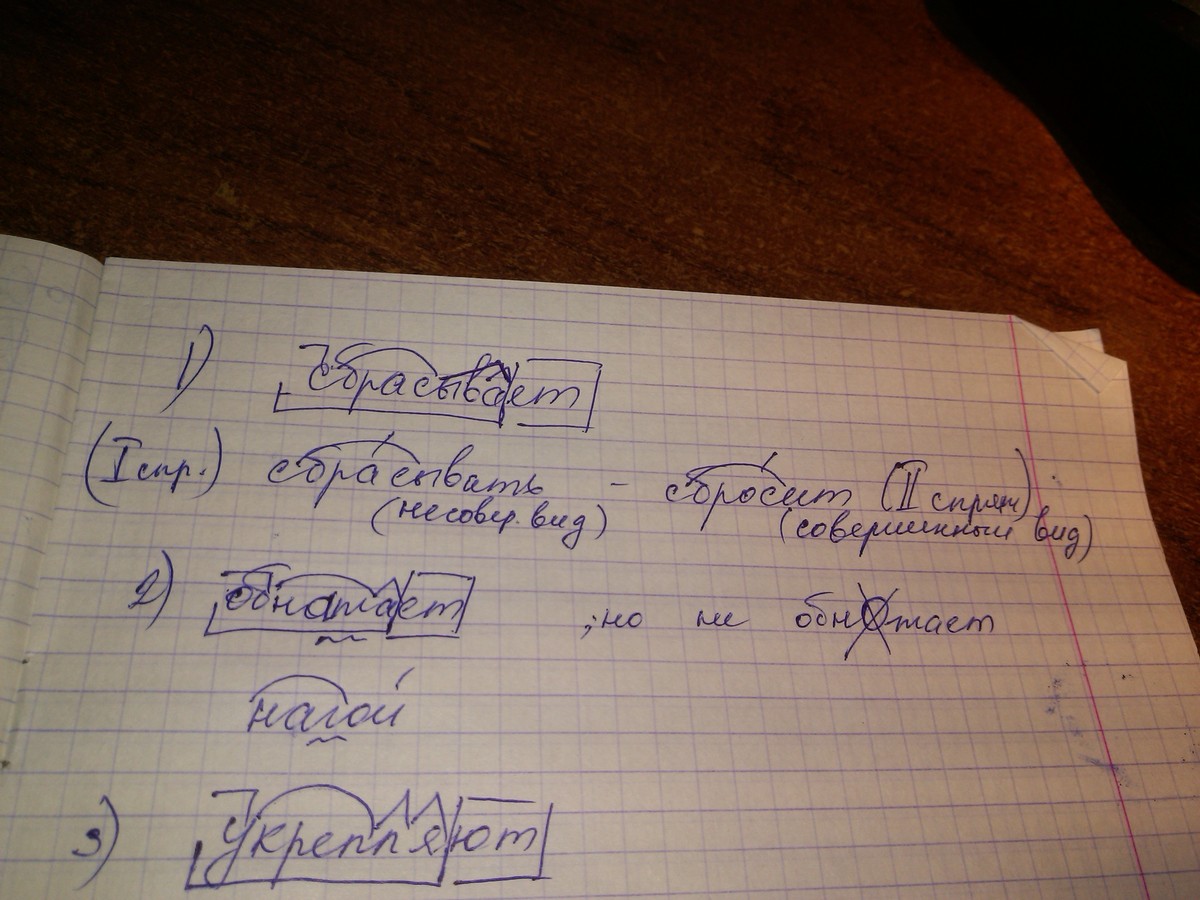 1) Сбрасывает
(I спр.) сбрасывать - сбросит (II спряж)
(несовер. вид) (совершенный вид)
2) обнатает ; но не обнотает
нагой
3) Укрепляют